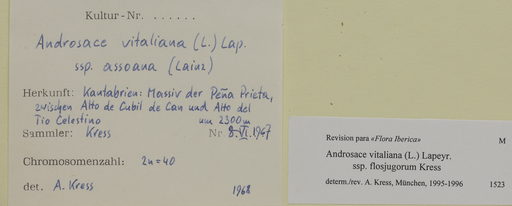 Kultur - Nr. . . . . . .
Androsace vitaliana (L.) Lap.
ssp. assoana (Lainz)
Herkunft: Kantabrien: Massiv der Peña Prieta,
zwischen Alto de Cubil de Can und Alto del
Tio Celestino um 2300 m
Sammler: Kress Nr 8.VI.1967
Chromosomenzahl: 2n = 40
det. A. Kress 1968
Revision para «Flora Iberica» M
Androsace vitaliana (L.) Lapeyr.
ssp. flosjugorum Kress
determ./rev. A. Kress, München, 1995-1996 1523